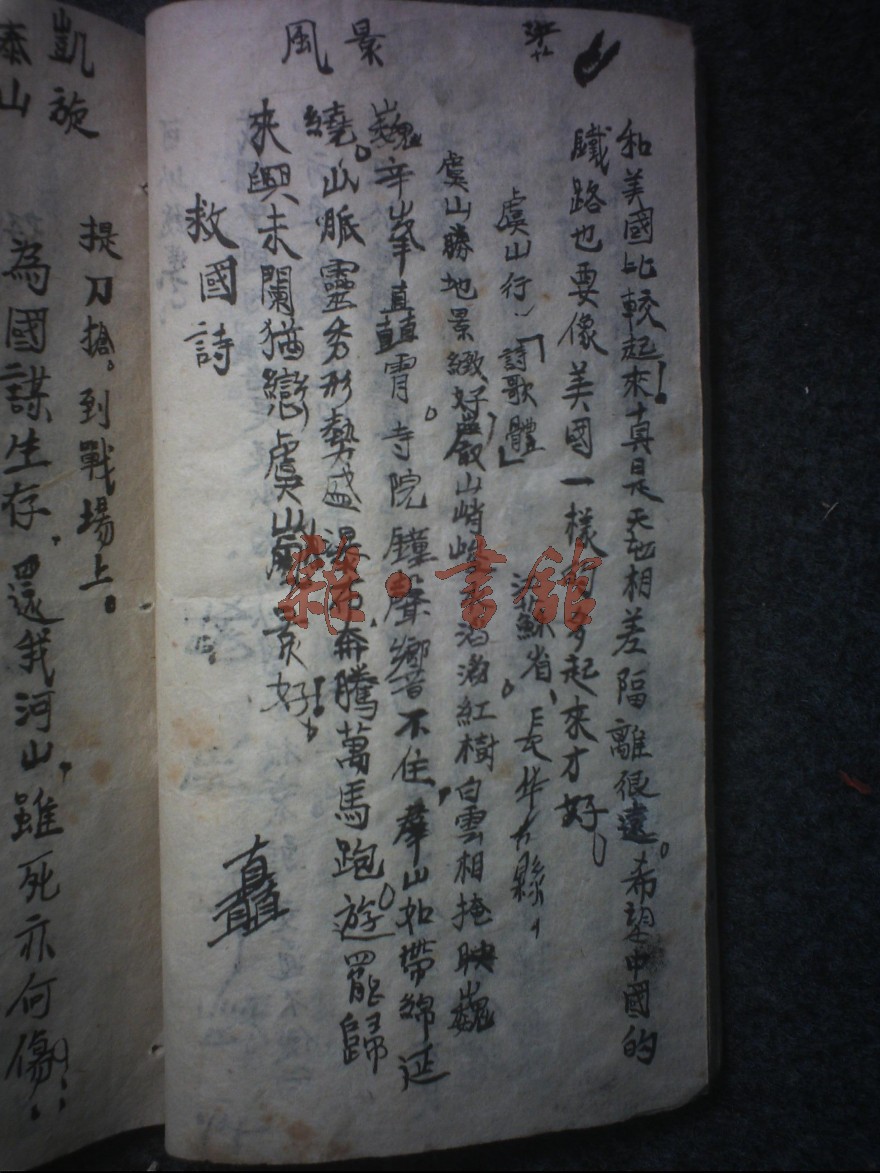 風景
和美國比較起來!真是天地相差隔離很遠。希望中國的
鐵路也要像美國一樣多起來才好。
虞山行~「詩歌體」 蘇省、縣、
虞山勝地景緻好,山峭紅樹白雲相掩映巍
巍辛峯直矗霄。寺院鐘聲響不住,羣山如帶綿延
繞。山脈靈秀形勢盛瀑布奔騰萬馬跑。遊罷歸
來興未闌猶戀虞山風景好!。
救國詩
直矗
提刀搶。到戰場上。
為國謀生存,還我河山,雖死亦何傷!!
凱旋
泰山
雜·書館